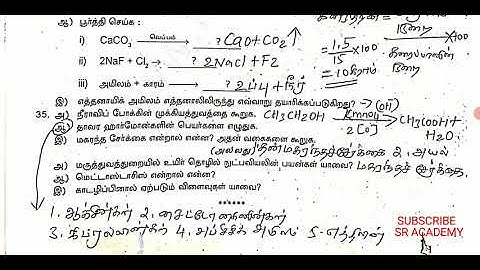 ஆ) பூர்த்தி செய்க :
i) CaCO₃ வெப்பம் → ? CaO + CO₂ ↑
ii) 2NaF + Cl₂ → ? 2NaCl + F₂
iii) அமிலம் + காரம் → ? உப்பு + நீர்
= 1.5/15 × 100
= 10 கிராம்
நிறை × 100
கரைப்பானின் நிறை
இ) எத்தனாயிக் அமிலம் எத்தனாலிலிருந்து எவ்வாறு தயாரிக்கப்படுகிறது? →
35. அ) நீராவிப் போக்கின் முக்கியத்துவத்தை கூறுக. CH₃CH₂OH KMnO₄ / 2[O] → CH₃COOH + H₂O
ஆ) தாவர ஹார்மோன்களின் பெயர்களை எழுதுக.
இ) மகரந்த சேர்க்கை என்றால் என்ன? அதன் வகைகளை கூறுக.
(அல்லது) தன்மகரந்தச்சேர்க்கை 2. அயல்
அ) மருத்துவத்துறையில் உயிர் தொழில் நுட்பவியலின் பயன்கள் யாவை? மகரந்தச் சேர்க்கை.
ஆ) மெட்டாஸ்டாசிஸ் என்றால் என்ன?
இ) காடழிப்பினால் ஏற்படும் விளைவுகள் யாவை?
1. ஆக்சின்கள் 2. சைட்டோகைனின்கள்
3. ஜிப்ரலின்கள் 4. அப்சிசிக் அமிலம் 5. எத்திலின்
SUBSCRIBE
SR ACADEMY